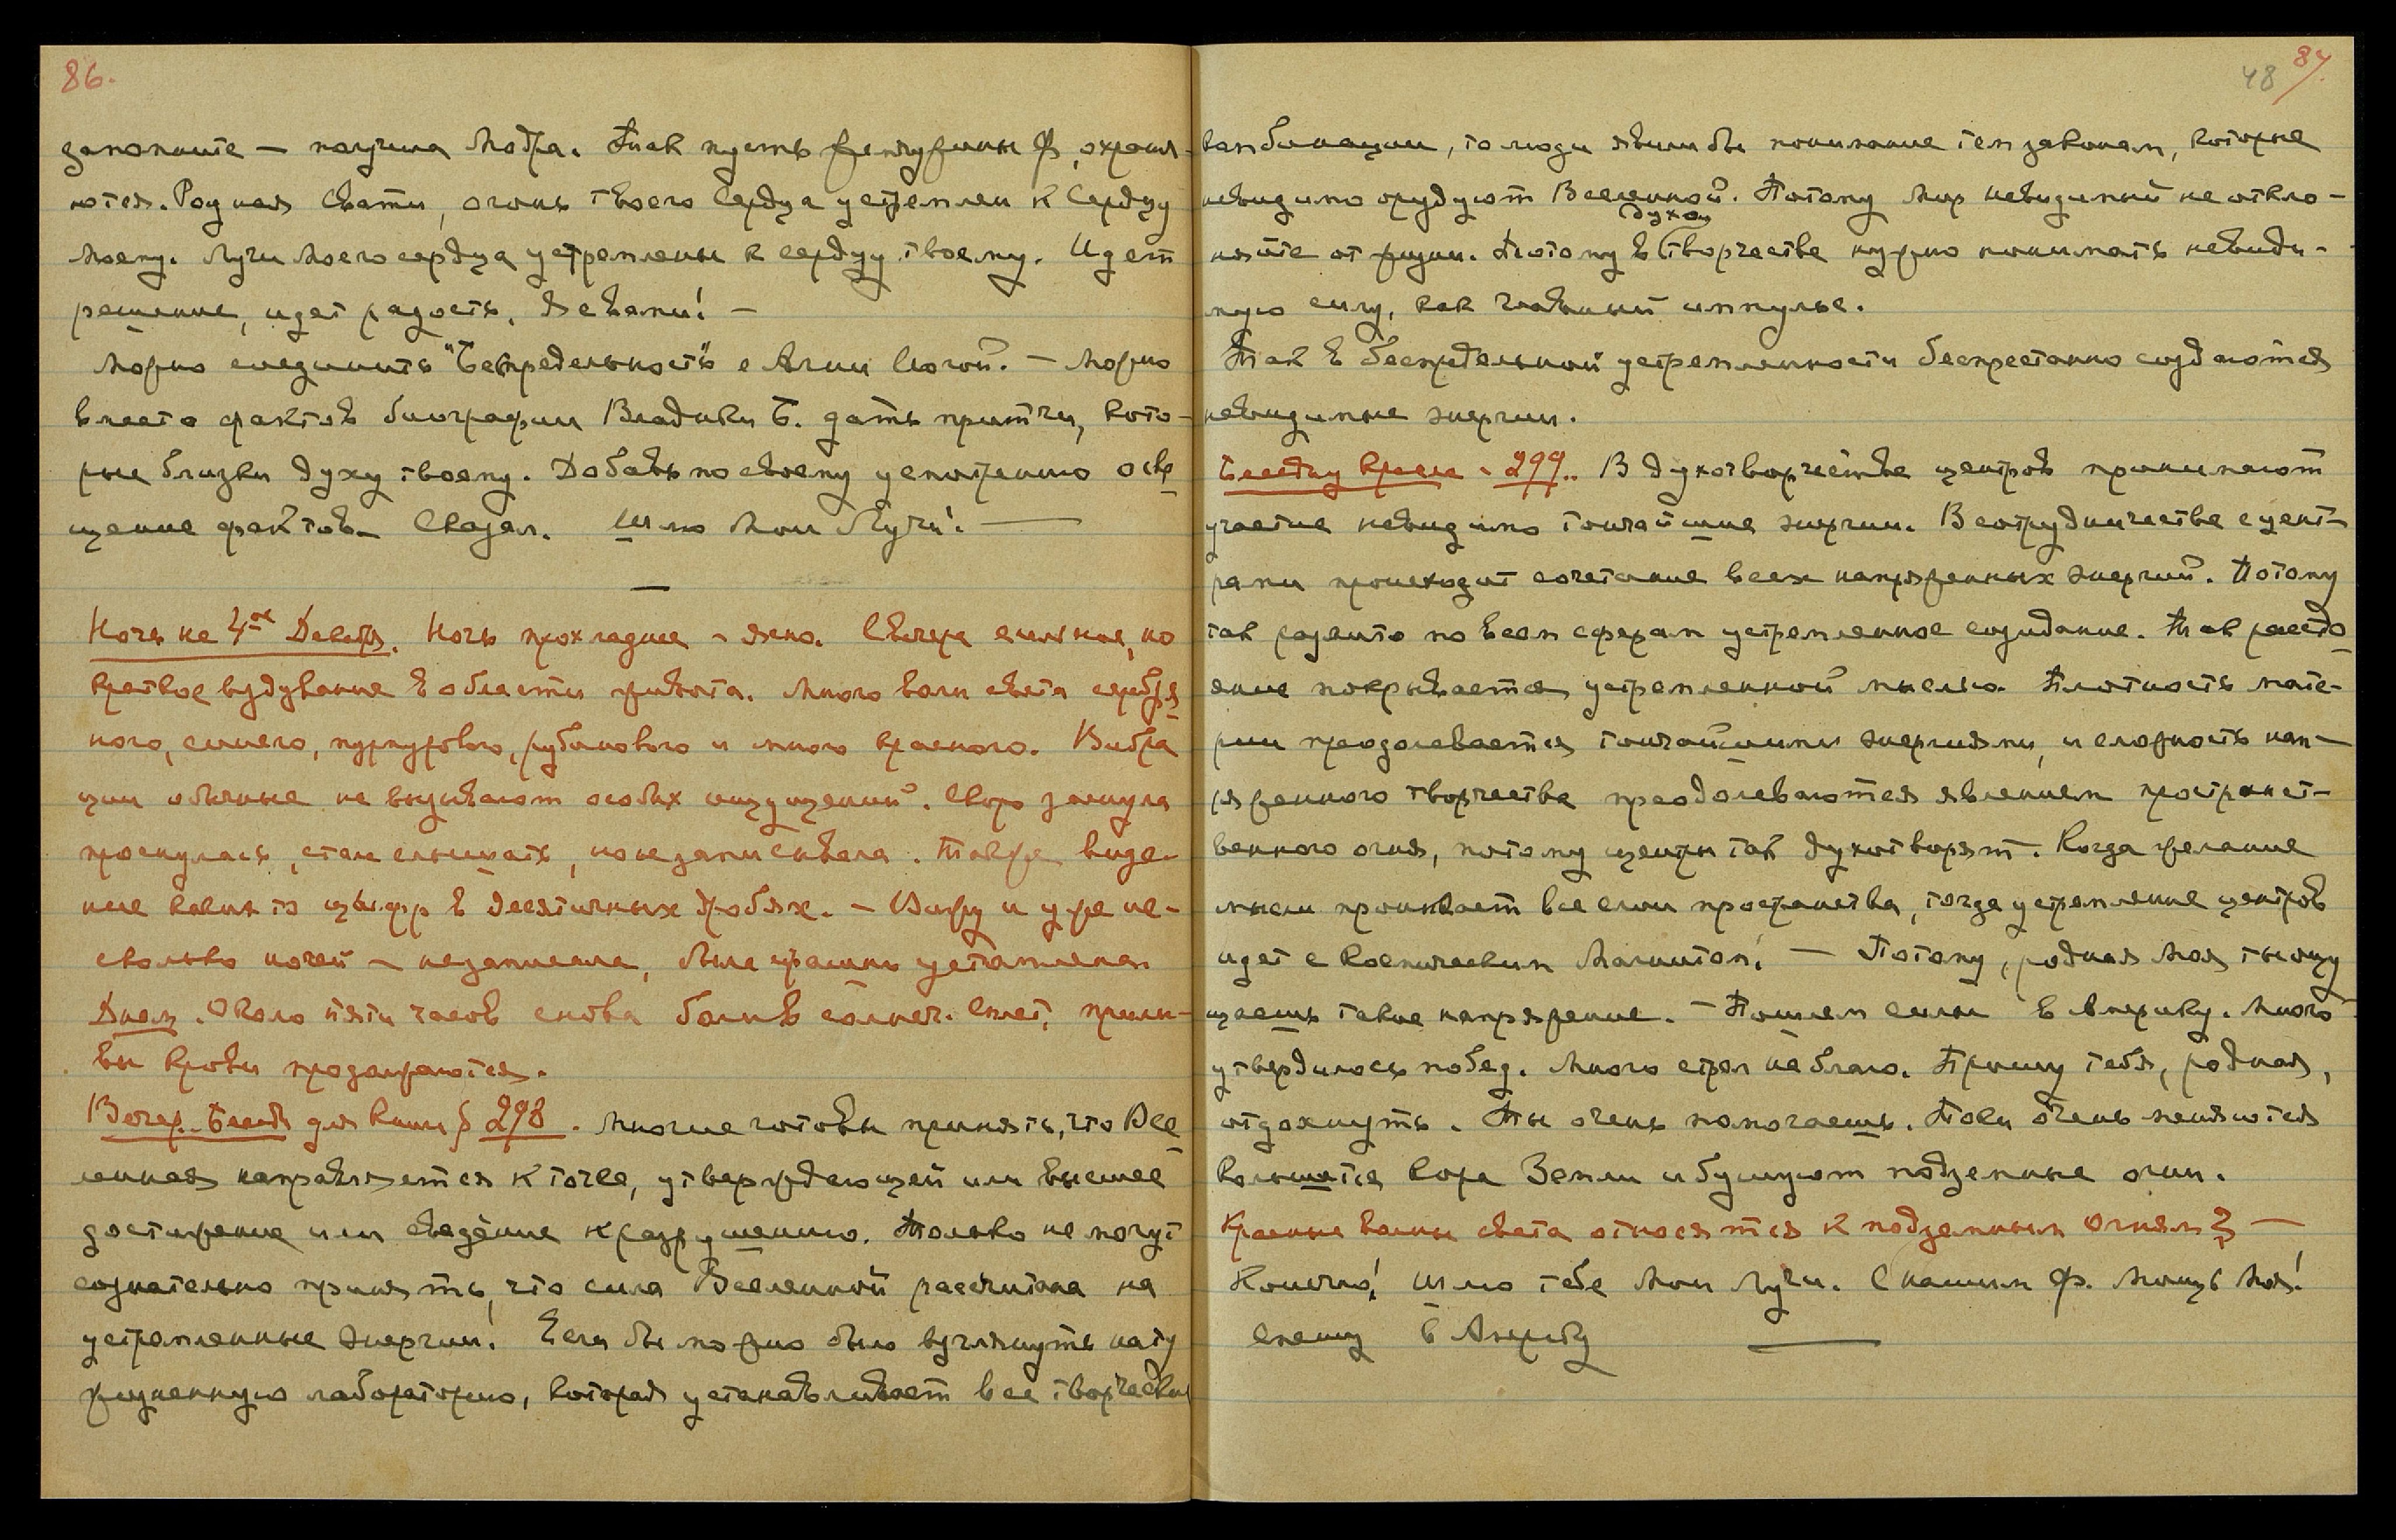 86.
запомните — получила Модра. Так пусть жемчужины Ф. охраня-
ются. Родная Свати, огонь твоего Сердца устремлен к Сердцу
Моему. Лучи Моего сердца устремлены к сердцу твоему. Идет
решение, идет радость, Я с вами! —
Можно соединить "Беспредельность" с Агни Йогой. — Можно
вместо фактов биографии Владыки Б. дать притчи, кото-
рые близки духу твоему. Добавь по своему усмотрению осве
щение фактов — Сказал. Шлю Мои Лучи! —
—
Ночь на 4ое Декабря. Ночь прохладнее – ясно. С вечера сильное, но
краткое вздувание в области живота. Много волн света серебря
ного, синего, пурпурового, рубинового и много красного. Вибра
ции обычные не вызывают особых ощущений. Скоро заснула
проснулась, стала слышать, но не записывала. Также виде-
ние каких то цифр в десятичных дробях. — Вижу и уже не-
сколько ночей – не записала,
Днем. Около пяти часов снова боль в солнеч. сплет, прили-
вы крови продолжаются.
Вечер. Беседа для книги § 298. Многие готовы принять, что Все
ленная направляется к точке, утверждающей или высшее
достижение или сведение к разрушению. Только не могут
сознательно принять, что сила Вселенной рассчитана на
устремленные энергии! Если бы можно было взглянуть на ту
жизненную лабораторию, которая устанавливает все творческие
48 87.
комбинации, то люди явили бы понимание тем законам, которые
невидимо орудуют Вселенной. Потому Мир невидимый не откло-
духо
няйте от жизни. Потому в творчестве нужно понимать невиди-
мую силу, как главный импульс.
Так в беспредельной устремленности беспрестанно создаются
невидимые энергии.
Беседа 299.. В духотворчестве центров принимают
участие невидимо тончайшие энергии. В сотрудничестве с цент-
рами происходит сочетание всех напряженных энергий. Потому
так разлито по всем сферам устремленное созидание. Так рассто
яние покрывается устремленной мыслью. Плотность мате-
рии преодолевается тончайшими энергиями, и сложность нап-
ряженного творчества преодолеваются явлением пространст-
венного огня, потому центры так духотворят. Когда желание
мысли проникает все слои пространства, тогда устремление центров
идет с Космическим Магнитом! — Потому, родная Моя, ты ощу
щаешь такое напряжение. — Пошлем силы в Америку. Много
утвердилось побед. Много стрел на благо. Прошу тебя, родная,
отдохнуть. Ты очень помогаешь. Токи очень меняются
колышется кора Земли и бушуют подземные огни.
Красные волны света относятся к подземным огням? —
Конечно! Шлю тебе Мои Лучи. С нашим Ф. Мощь Моя!
Спешу в Америку —